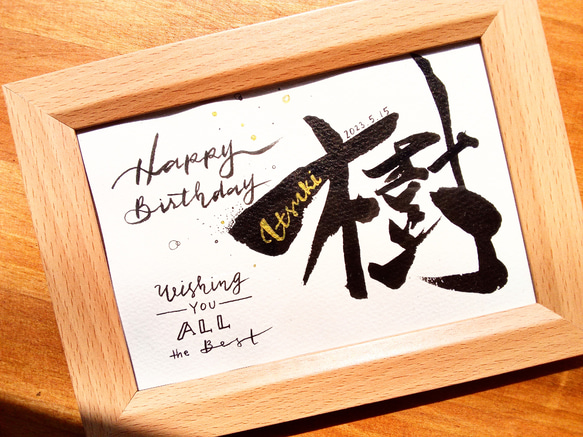 Happy
Birthday
Wishing
YOU
ALL
the Best
2023.5.15
樹
Itsuki